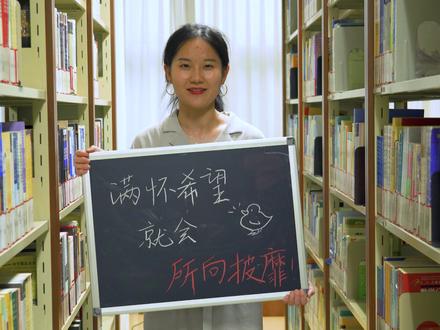 满怀希望
就会
所向披靡!